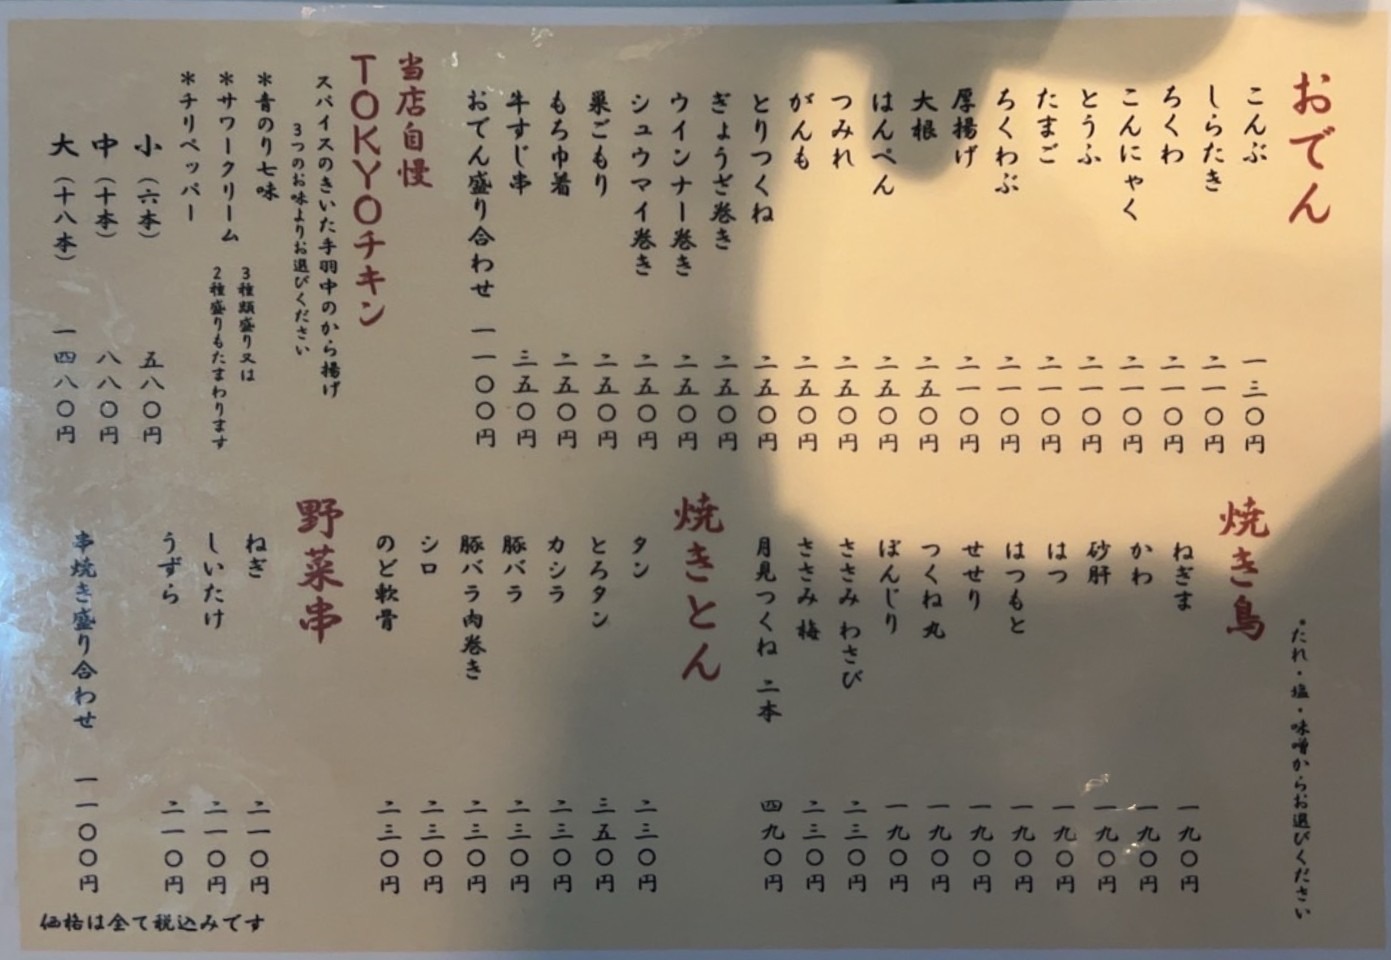 おでん
こんぶ 一三〇円
しらたき 二一〇円
ちくわ 二一〇円
こんにゃく 二一〇円
とうふ 二一〇円
たまご 二一〇円
ちくわぶ 二一〇円
厚揚げ 二一〇円
大根 二五〇円
はんぺん 二五〇円
つみれ 二五〇円
がんも 二五〇円
とりつくね 二五〇円
ぎょうざ巻き 二五〇円
ウインナー巻き 二五〇円
シュウマイ巻き 二五〇円
巣ごもり 二五〇円
もち巾着 二五〇円
牛すじ串 三五〇円
おでん盛り合わせ 一一〇〇円
当店自慢
TOKYOチキン
スパイスのきいた手羽中のから揚げ
3つのお味よりお選びください
*青のり七味
*サワークリーム
*チリペッパー
3種類盛り又は
2種盛りもたまわります
小(六本) 五八〇円
中(十本) 八八〇円
大(十八本) 一四八〇円
焼き鳥
*たれ・塩・味噌からお選びください
ねぎま 一九〇円
かわ 一九〇円
砂肝 一九〇円
はつ 一九〇円
はつもと 一九〇円
せせり 一九〇円
つくね丸 一九〇円
ぼんじり 一九〇円
ささみ わさび 二三〇円
ささみ 梅 二三〇円
月見つくね 二本 四九〇円
焼きとん
タン 二三〇円
とろタン 三五〇円
カシラ 二三〇円
豚バラ 二三〇円
豚バラ肉巻き 二三〇円
シロ 二三〇円
のど軟骨 二三〇円
野菜串
ねぎ 二一〇円
しいたけ 二一〇円
うずら 二一〇円
串焼き盛り合わせ 一一〇〇円
価格は全て税込みです